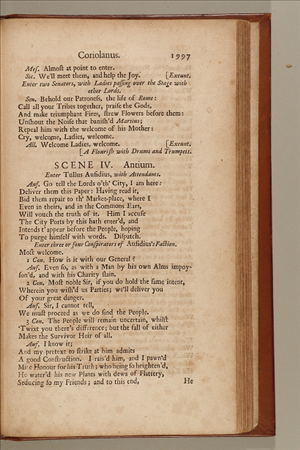 Coriolanus. 1997
Mes. Almoſt at point to enter.
Sic. We'll meet them, and help the Joy. [Exeunt.
Enter two Senators, with Ladies paſſing over the Stage with
other Lords.
Sen. Behold our Patroneſs, the life of Rome:
Call all your Tribes together, praiſe the Gods,
And make triumphant Fires, ſtrew Flowers before them:
Unſhout the Noiſe that baniſh'd Martius;
Repeal him with the welcome of his Mother:
Cry, welcome, Ladies, welcome.
All. Welcome Ladies, welcome. [Exeunt.
[A Flouriſh with Drums and Trumpets.
SCENE IV. Antium.
Enter Tullus Aufidius, with Attendants.
Auf. Go tell the Lords o'th' City, I am here:
Deliver them this Paper: Having read it,
Bid them repair to th' Market-place, where I
Even in theirs, and in the Commons Ears,
Will vouch the truth of it. Him I accuſe
The City Ports by this hath enter'd, and
Intends t'appear before the People, hoping
To purge himſelf with words. Diſpatch.
Enter three or four Conſpirators of Aufidius's Faction.
Moſt welcome.
1 Con. How is it with our General?
Auf. Even ſo, as with a Man by his own Alms impoy-
ſon'd, and with his Charity ſlain.
2 Con. Moſt noble Sir, if you do hold the ſame intent,
Wherein you wiſh'd us Parties; we'll deliver you
Of your great danger.
Auf. Sir, I cannot tell,
We muſt proceed as we do find the People.
3 Con. The People will remain uncertain, whilſt
'Twixt you there's difference; but the fall of either
Makes the Survivor Heir of all.
Auf. I know it;
And my pretext to ſtrike at him admits
A good Conſtruction. I rais'd him, and I pawn'd
Mine Honour for his Truth; who being ſo heighten'd,
He water'd his new Plants with dews of Flattery,
Seducing ſo my Friends; and to this end,
He